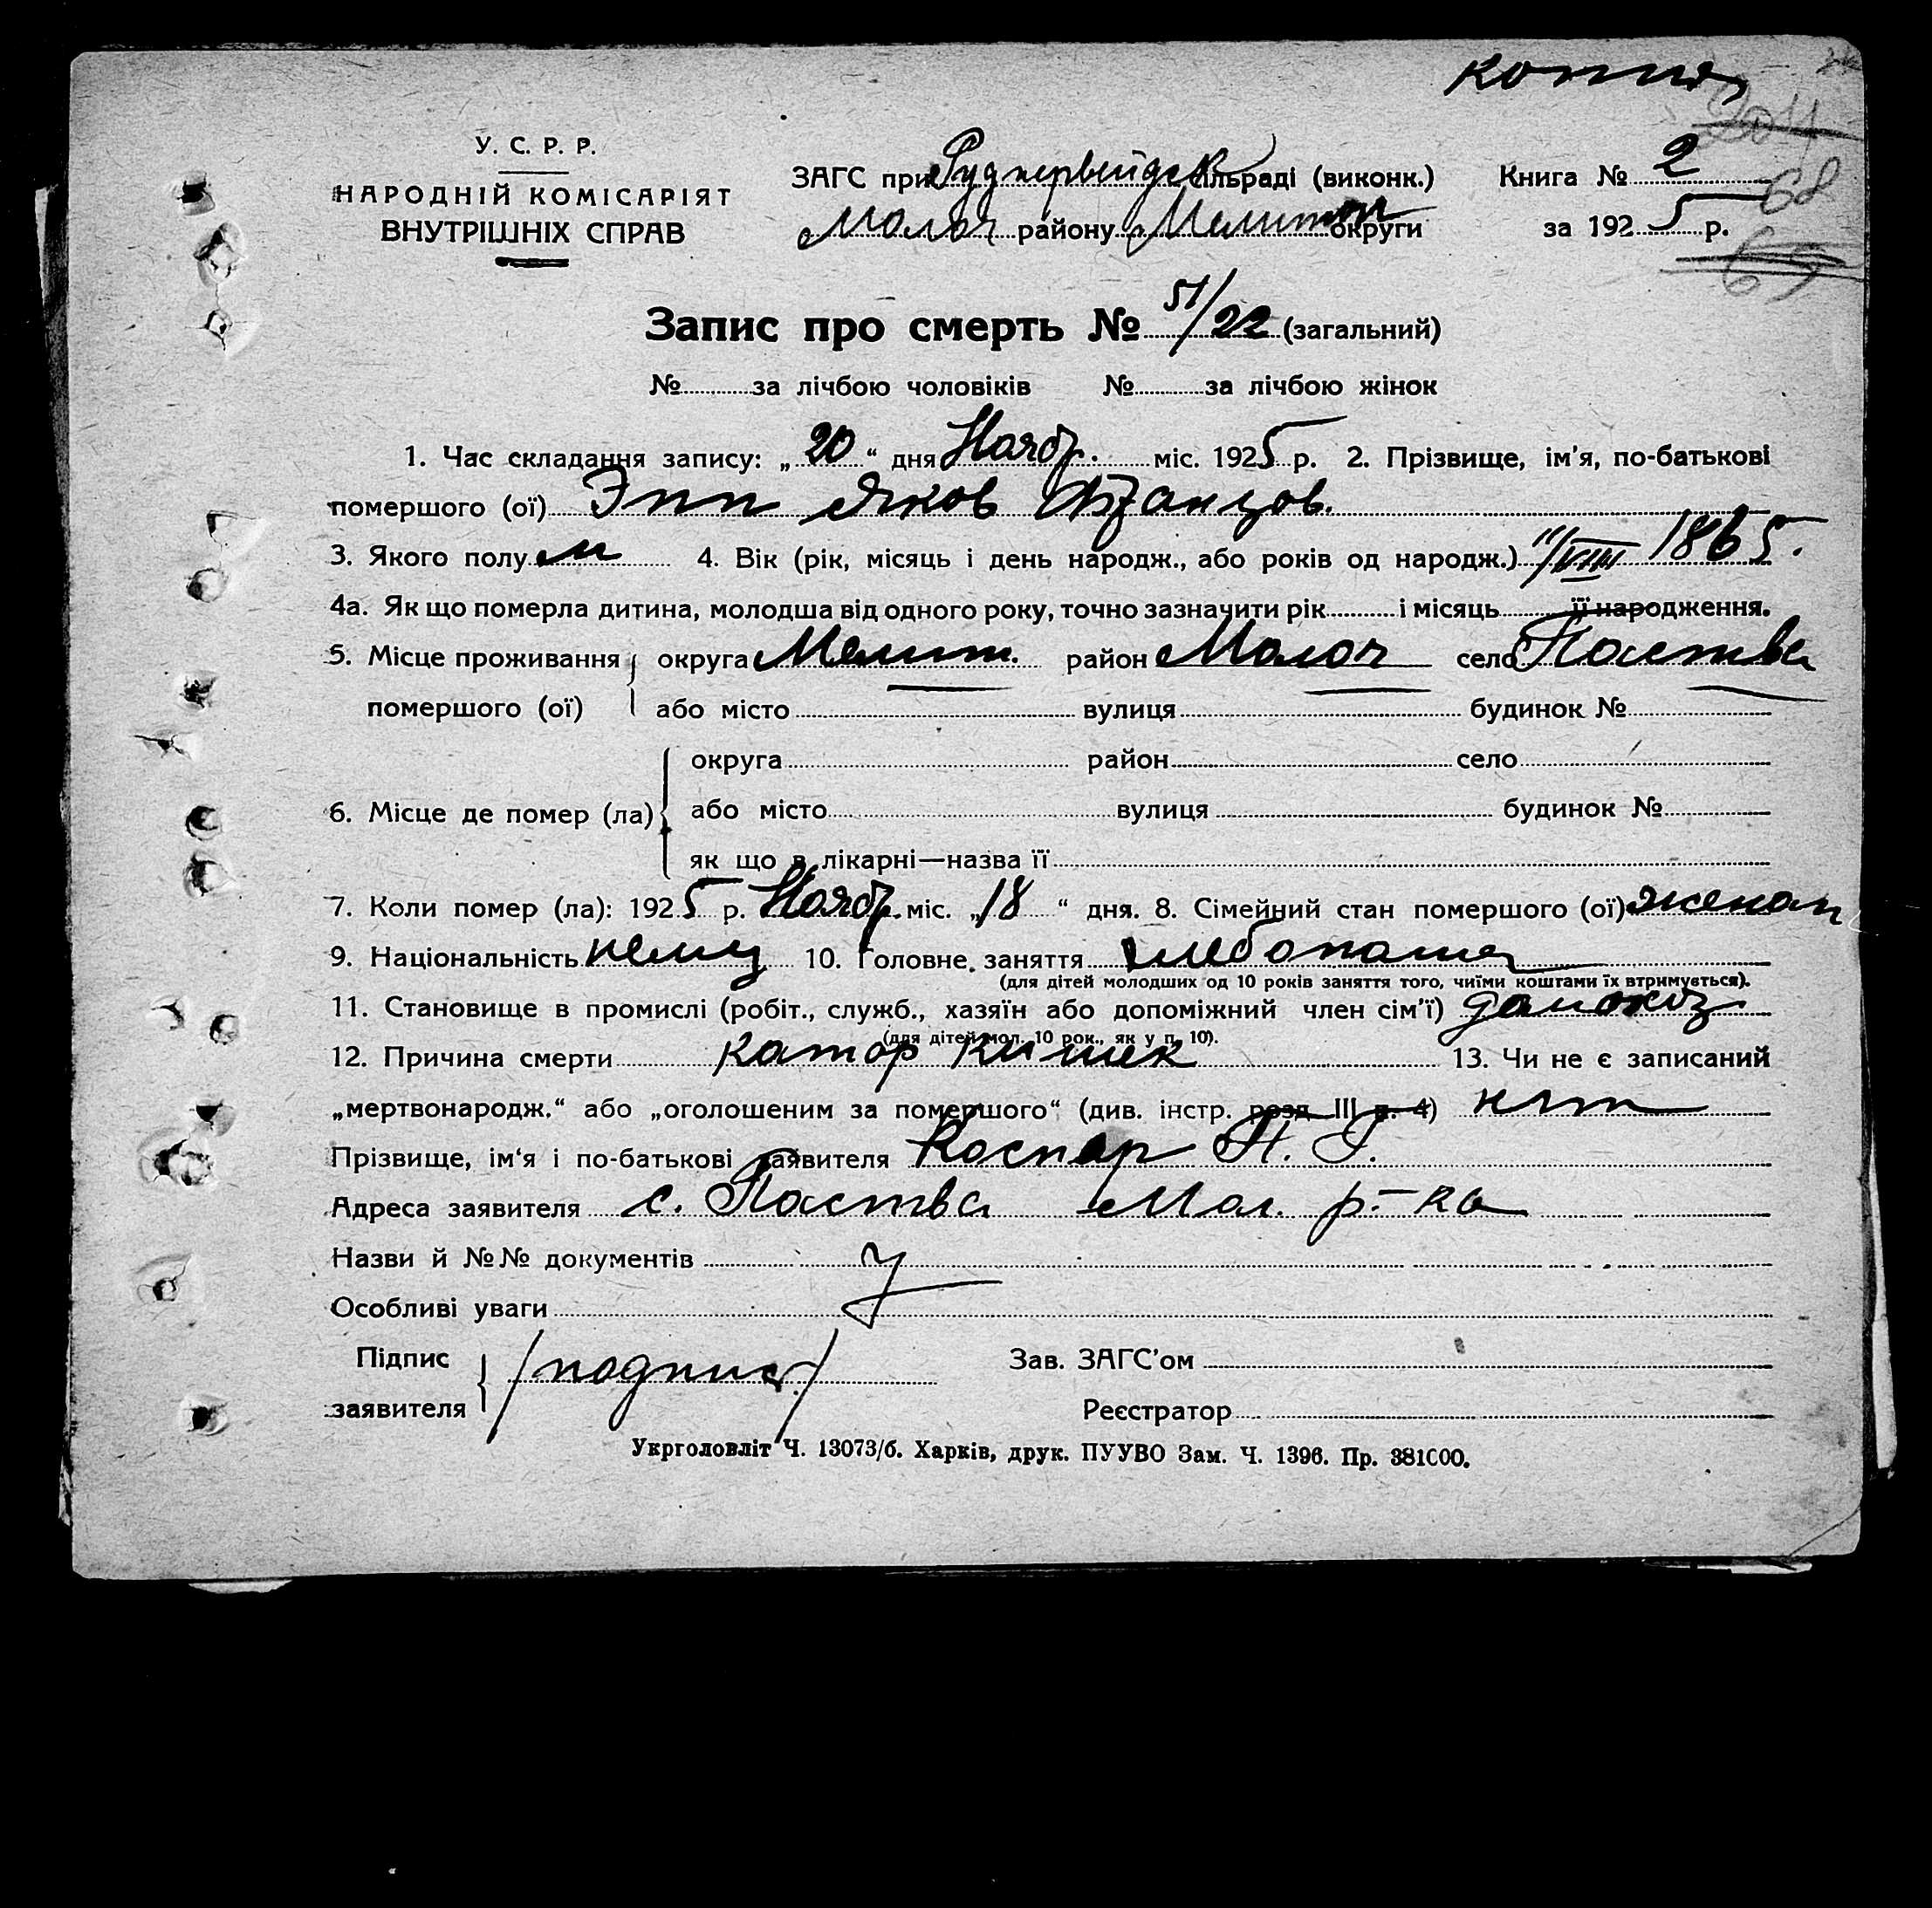 копия
204
У. С. Р. Р.
НАРОДНІЙ КОМІСАРІЯТ
ВНУТРІШНІХ СПРАВ
ЗАГС при Руднервейдск сільраді (виконк.)
Молоч району Мелитоп округи
Книга № 2
68
за 1925 р.
69
Запис про смерть № 51/22 (загальний)
№ за лічбою чоловіків № за лічбою жінок
1. Час складання запису: „20“ дня Ноябр. міс. 1925 р. 2. Прізвище, ім'я, по-батькові
помершого (ої) Эпп Яков Францов.
3. Якого полу м 4. Вік (рік, місяць і день народж., або років од народж.) 11/VIII 1865.
4а. Як що померла дитина, молодша від одного року, точно зазначити рік і місяць її народження.
5. Місце проживання округа Мелит. район Молоч село Паства
помершого (ої) або місто вулиця будинок №
округа район село
6. Місце де помер (ла) або місто вулиця будинок №
як що в лікарні—назва її
7. Коли помер (ла): 1925 р. Ноябр. міс. „18“ дня. 8. Сімейний стан помершого (ої) женат
9. Національність немец 10. Головне заняття хлебопаш
(для дітей молодших од 10 років заняття того, чиїми коштами їх втримується).
11. Становище в промислі (робіт., служб., хазяїн або допоміжний член сім'ї) домохоз
(для дітей мол. 10 рок., як у п. 10).
12. Причина смерти катар кишек 13. Чи не є записаний
„мертвонародж.“ або „оголошеним за помершого“ (див. інстр. розд III п. 4) нет
Прізвище, ім'я і по-батькові заявителя Каспар
Адреса заявителя с. Паства Мол. р-на
Назви й №№ документів
Особливі уваги
Підпис /подпись/ Зав. ЗАГС'ом
заявителя Реєстратор
Укрголовліт Ч. 13073/б. Харків, друк. ПУУВО Зам. Ч. 1396. Пр. 381000.